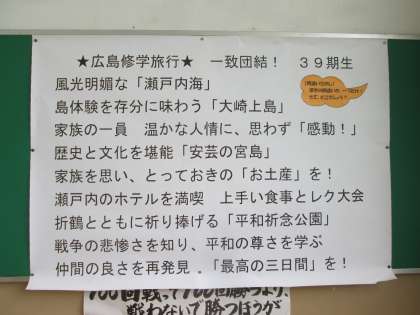 ★広島修学旅行★　一致団結！　３９期生
風光明媚な「瀬戸内海」
島体験を存分に味わう「大崎上島」
家族の一員　温かな人情に、思わず「感動！」
歴史と文化を堪能「安芸の宮島」
家族を思い、とっておきの「お土産」を！
瀬戸内のホテルを満喫　上手い食事とレク大会
折鶴とともに祈り捧げる「平和祈念公園」
戦争の悲惨さを知り、平和の尊さを学ぶ
仲間の良さを再発見 。「最高の三日間」を！
100回戦って100回勝つより、
戦わないで勝つほうが